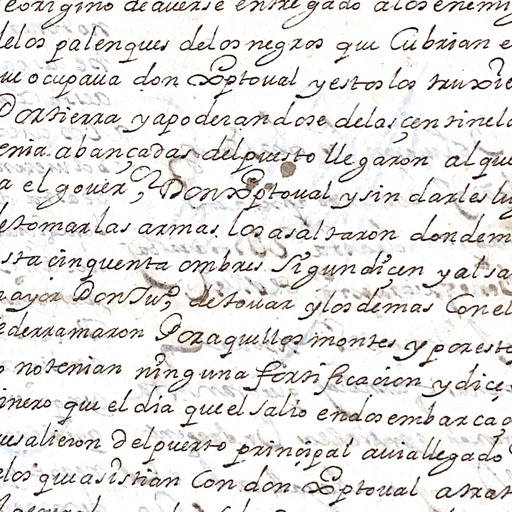 eorigino de auerse entregado alos enemi
delos palenques delos negros que Cubrian e
ue ocupaua don Xptoual y estos los truxie
Por tierra y apoderandose delas çentinela
enia abançadas del puesto llegaron al que
a el gouerr Don Xptoual y sin darles lu
detomar las armas los asaltaron donde m
sta cinquenta ombres sigun diçen y al sa
mayor Don Ju° de touar y los demas Con el
ederramaron Por aquellos montes y por esto
o notenian ninguna fortificacion y diçe
inero que el dia que el salio en dos embarcaço
ue salieron del puerto prinçipal auia llegado
elos que asistian Con don Xptoual atrat